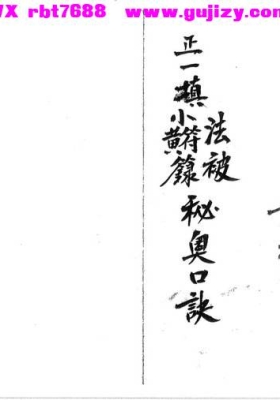 VX rbt7688 www.gujizy.com
正一填
法被
符籙
小黃
秘奧口訣